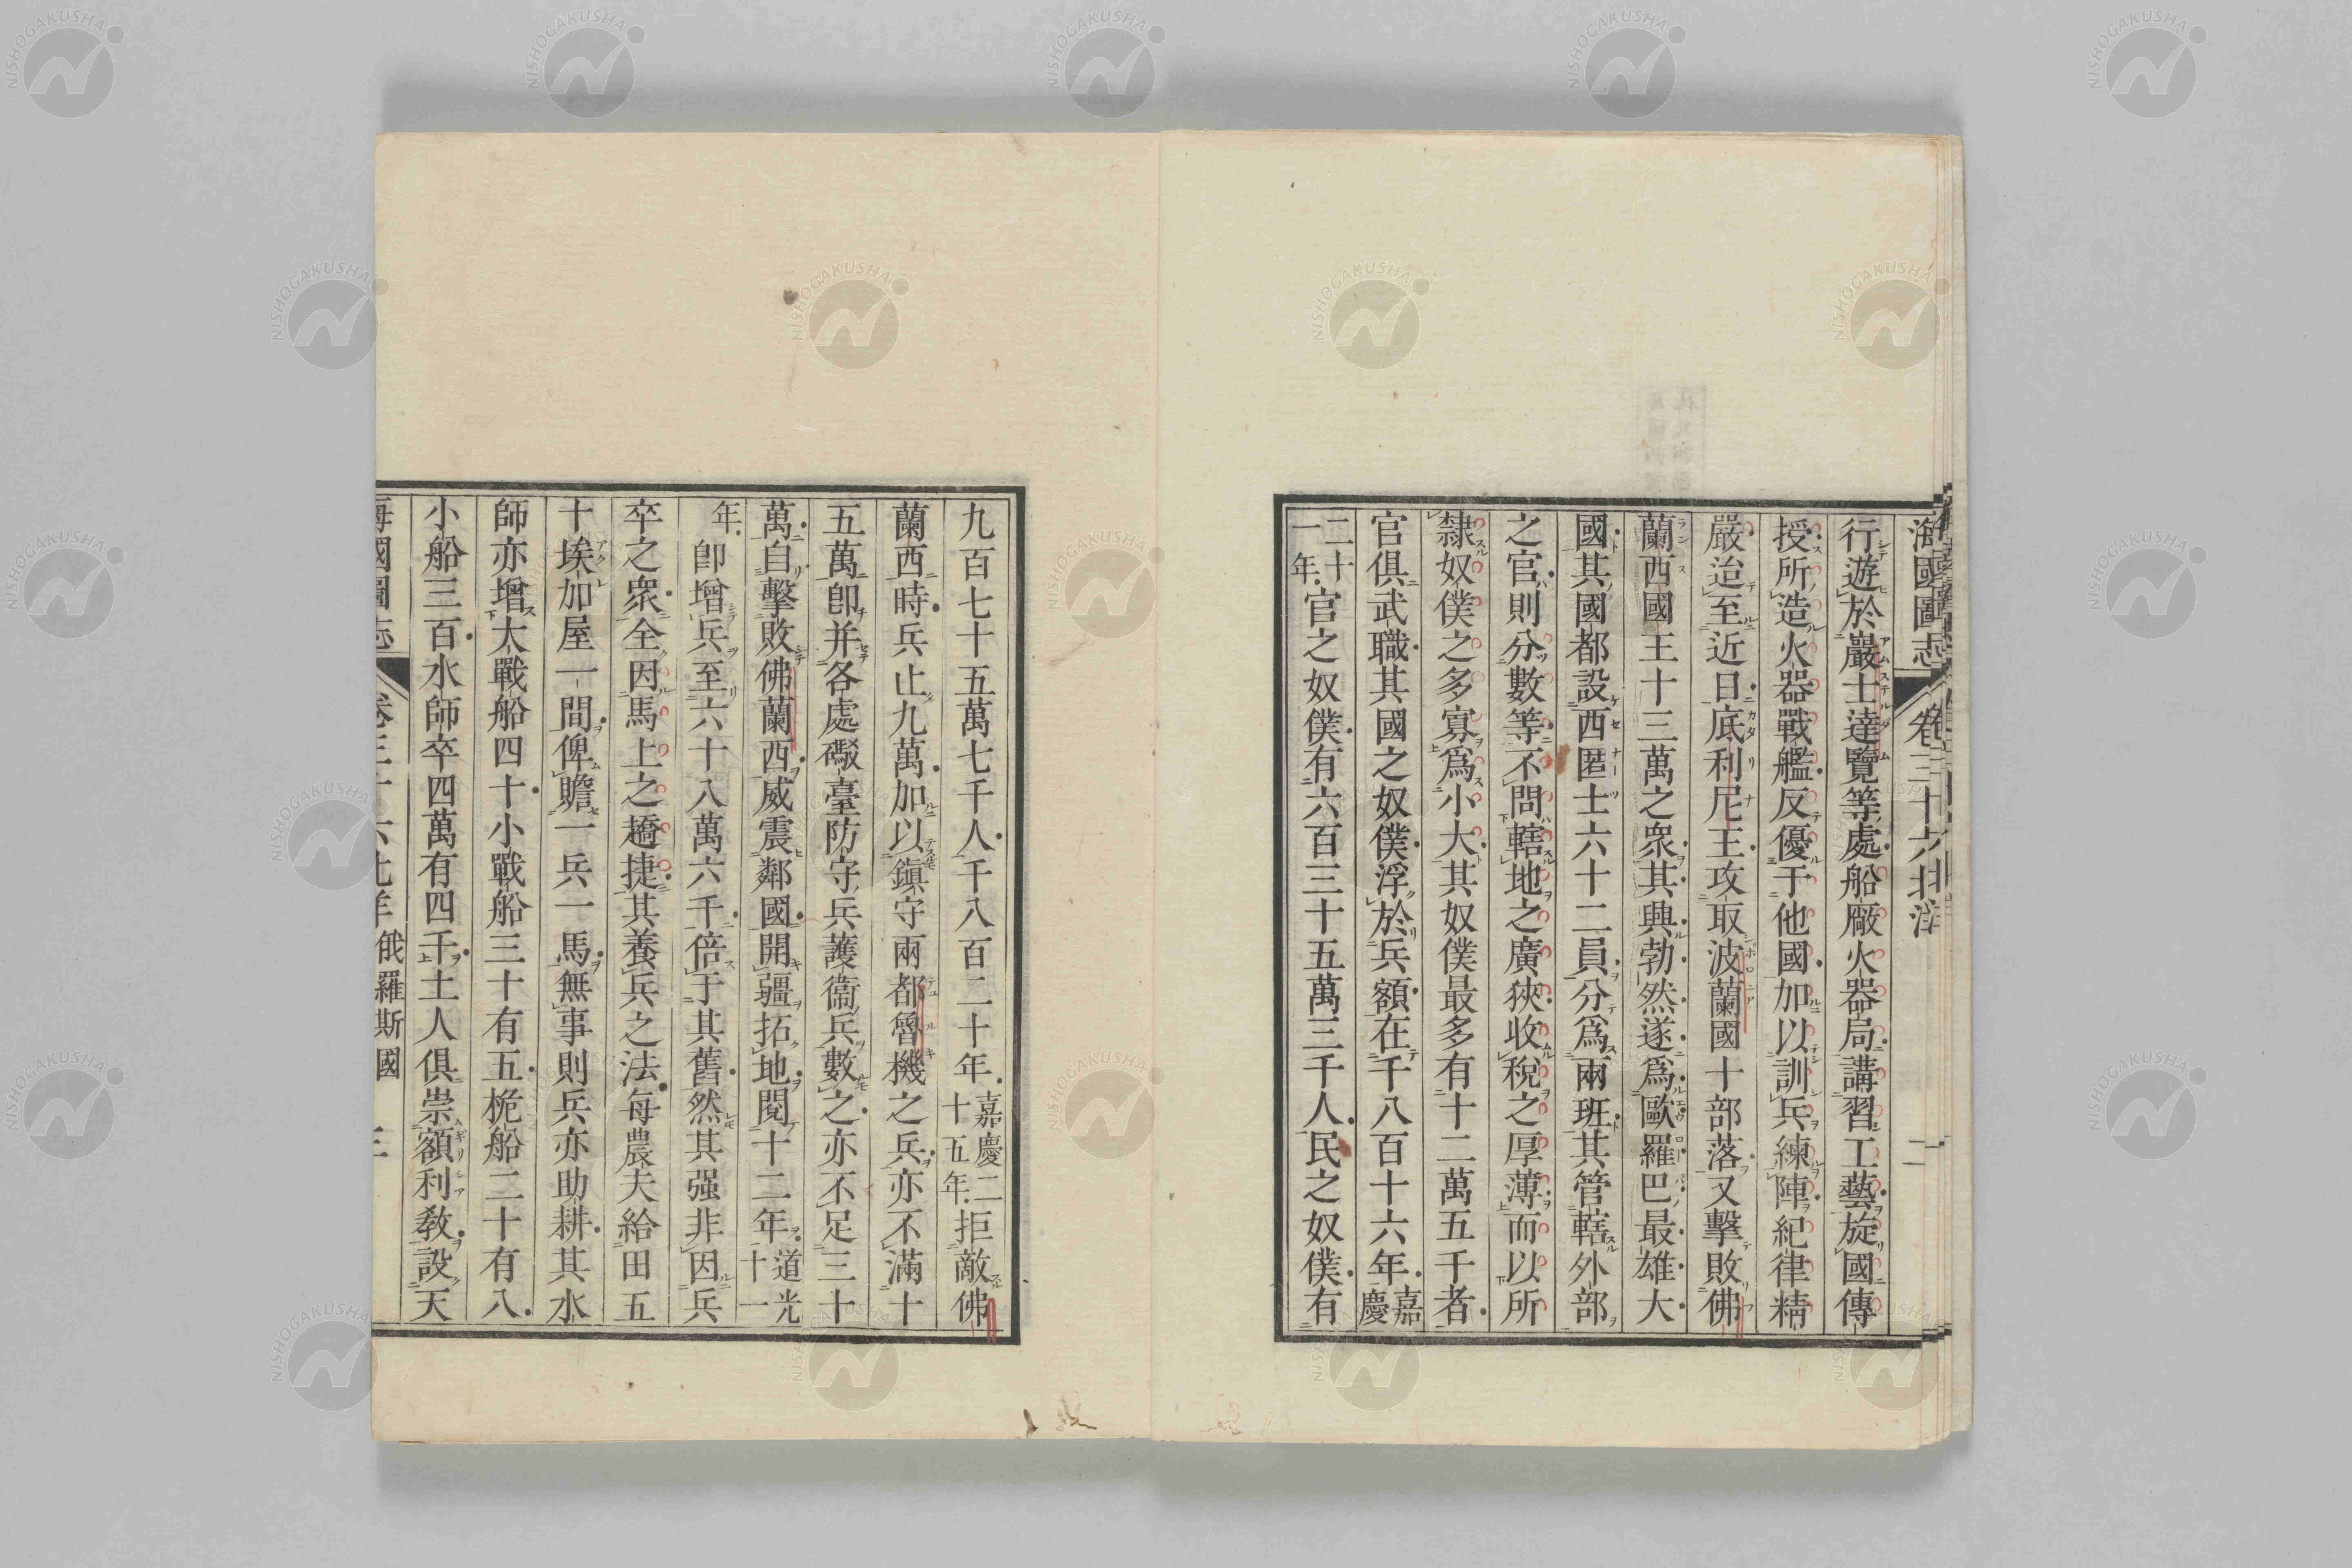 海國圖志 卷三十六 北洋 二
行遊於巖士達覽等處船廠火器局講習工藝旋國傳
授所造火器戰艦反優于他國加以訓兵練陣紀律精
嚴迨至近日底利尼王攻取波蘭國十部落又擊敗佛
蘭西國王十三萬之衆其興勃然遂爲歐羅巴最雄大
國其國都設西匿士六十二員分爲兩班其管轄外部
之官則分數等不問轄地之廣狹收稅之厚薄而以所
隸奴僕之多寡爲小大其奴僕最多有十二萬五千者
官俱武職其國之奴僕浮於兵額在千八百十六年嘉慶
二十一年官之奴僕有六百三十五萬三千人民之奴僕有
九百七十五萬七千人千八百二十年嘉慶二十五年拒敵佛
蘭西時兵止九萬加以鎭守兩都魯機之兵亦不滿十
五萬卽并各處礮臺防守兵護衞兵數之亦不足三十
萬自擊敗佛蘭西威震鄰國開疆拓地閱十二年道光十一
年卽增兵至六十八萬六千倍于其舊然其强非因兵
卒之衆全因馬上之趫捷其養兵之法每農夫給田五
十埃加屋一間俾贍一兵一馬無事則兵亦助耕其水
師亦增大戰船四十小戰船三十有五桅船二十有八
小船三百水師卒四萬有四千土人俱崇額利敎設天
海國圖志 卷三十六 北洋 俄羅斯國 三
NISHOGAKUSHA